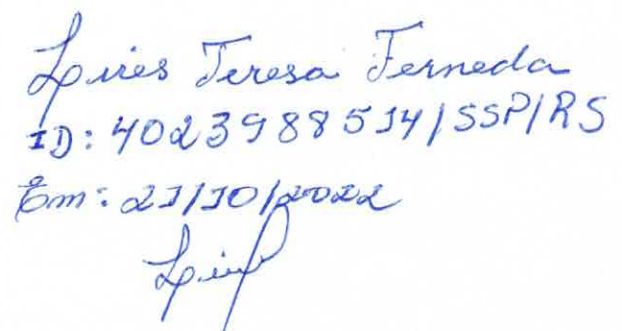 Lires Teresa Ferneda
ID: 4023988514/SSP/RS
Em: 21/10/2022